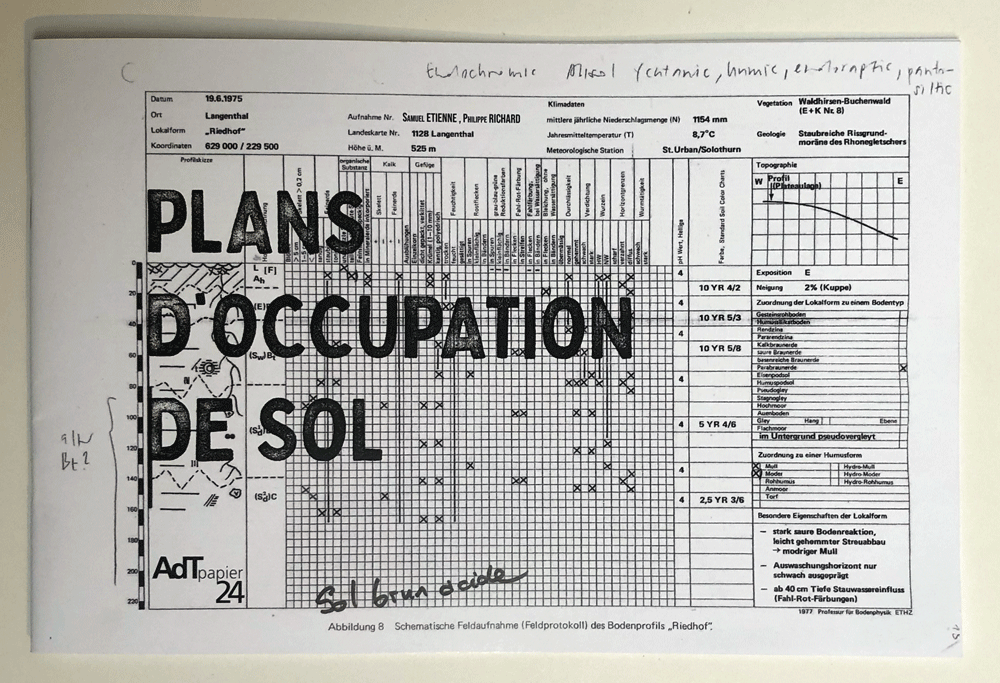 Endochromic Alisol
Datum 19.6.1975
Ort Langenthal
Lokalform „Riedhof"
Koordinaten 629 000 / 229 500
Aufnahme Nr. SAMUEL ETIENNE, PHILIPPE RICHARD
Landeskarte Nr. 1128 Langenthal
Höhe ü, M. 525 m
Klimadaten
mittlere jährliche Niederschlagsmenge (N) 1154 mm
Jahresmitteltemperatur (T) 8,7°C
Meteorologische Station St.Urban/Solothurn
Vegetation Waldhirsen-Buchenwald
(E+K Nr. 8)
Geologie Staubreiche Rissgrund-
moräne des Rhonegletschers
Profilskizze
organische
Substanz
Kalk
Gefüge
Skelett
Feinerde
Feuchtigkeit
Rostflecken
Fahl-Rot-Färbung
Durchlässigkeit
Verdichtung
Wurzeln
Horizontgrenzen
Wurmtätigkeit
pH Wert, Hellige
Farbe, Standard Soil Color Charts
Topographie
W Profil E
(Plateaulage)
PLANS
D'OCCUPATION
DE SOL
0
40
60
80
100
120
140
160
180
200
220
L [F]
Ah
(Sw)Bt
(Sd)C
4
4
4
4
4
4
4
10 YR 4/2
10 YR 5/3
10 YR 5/8
5 YR 4/6
2,5 YR 3/6
Exposition E
Neigung 2% (Kuppe)
Zuordnung der Lokalform zu einem Bodentyp
Gesteinsrohboden
Humussilikatboden
Rendzina
Pararendzina
Kalkbraunerde
saure Braunerde
basenreiche Braunerde
Parabraunerde
Eisenpodsol
Humuspodsol
Pseudogley
Stagnogley
Hochmoor
Auenboden
Gley Hang Ebene
Flachmoor
im Untergrund pseudovergleyt
Zuordnung zu einer Humusform
Mull Hydro-Mull
Moder Hydro-Moder
Rohhumus Hydro-Rohhumus
Anmoor
Torf
Besondere Eigenschaften der Lokalform
– stark saure Bodenreaktion,
leicht gehemmter Streuabbau
→ modriger Mull
– Auswaschungshorizont nur
schwach ausgeprägt
– ab 40 cm Tiefe Stauwassereinfluss
(Fahl-Rot-Färbungen)
Bt?
AdTpapier
24
Sol brun acide
1977 Professur für Bodenphysik ETHZ
Abbildung 8 Schematische Feldaufnahme (Feldprotokoll) des Bodenprofils „Riedhof".